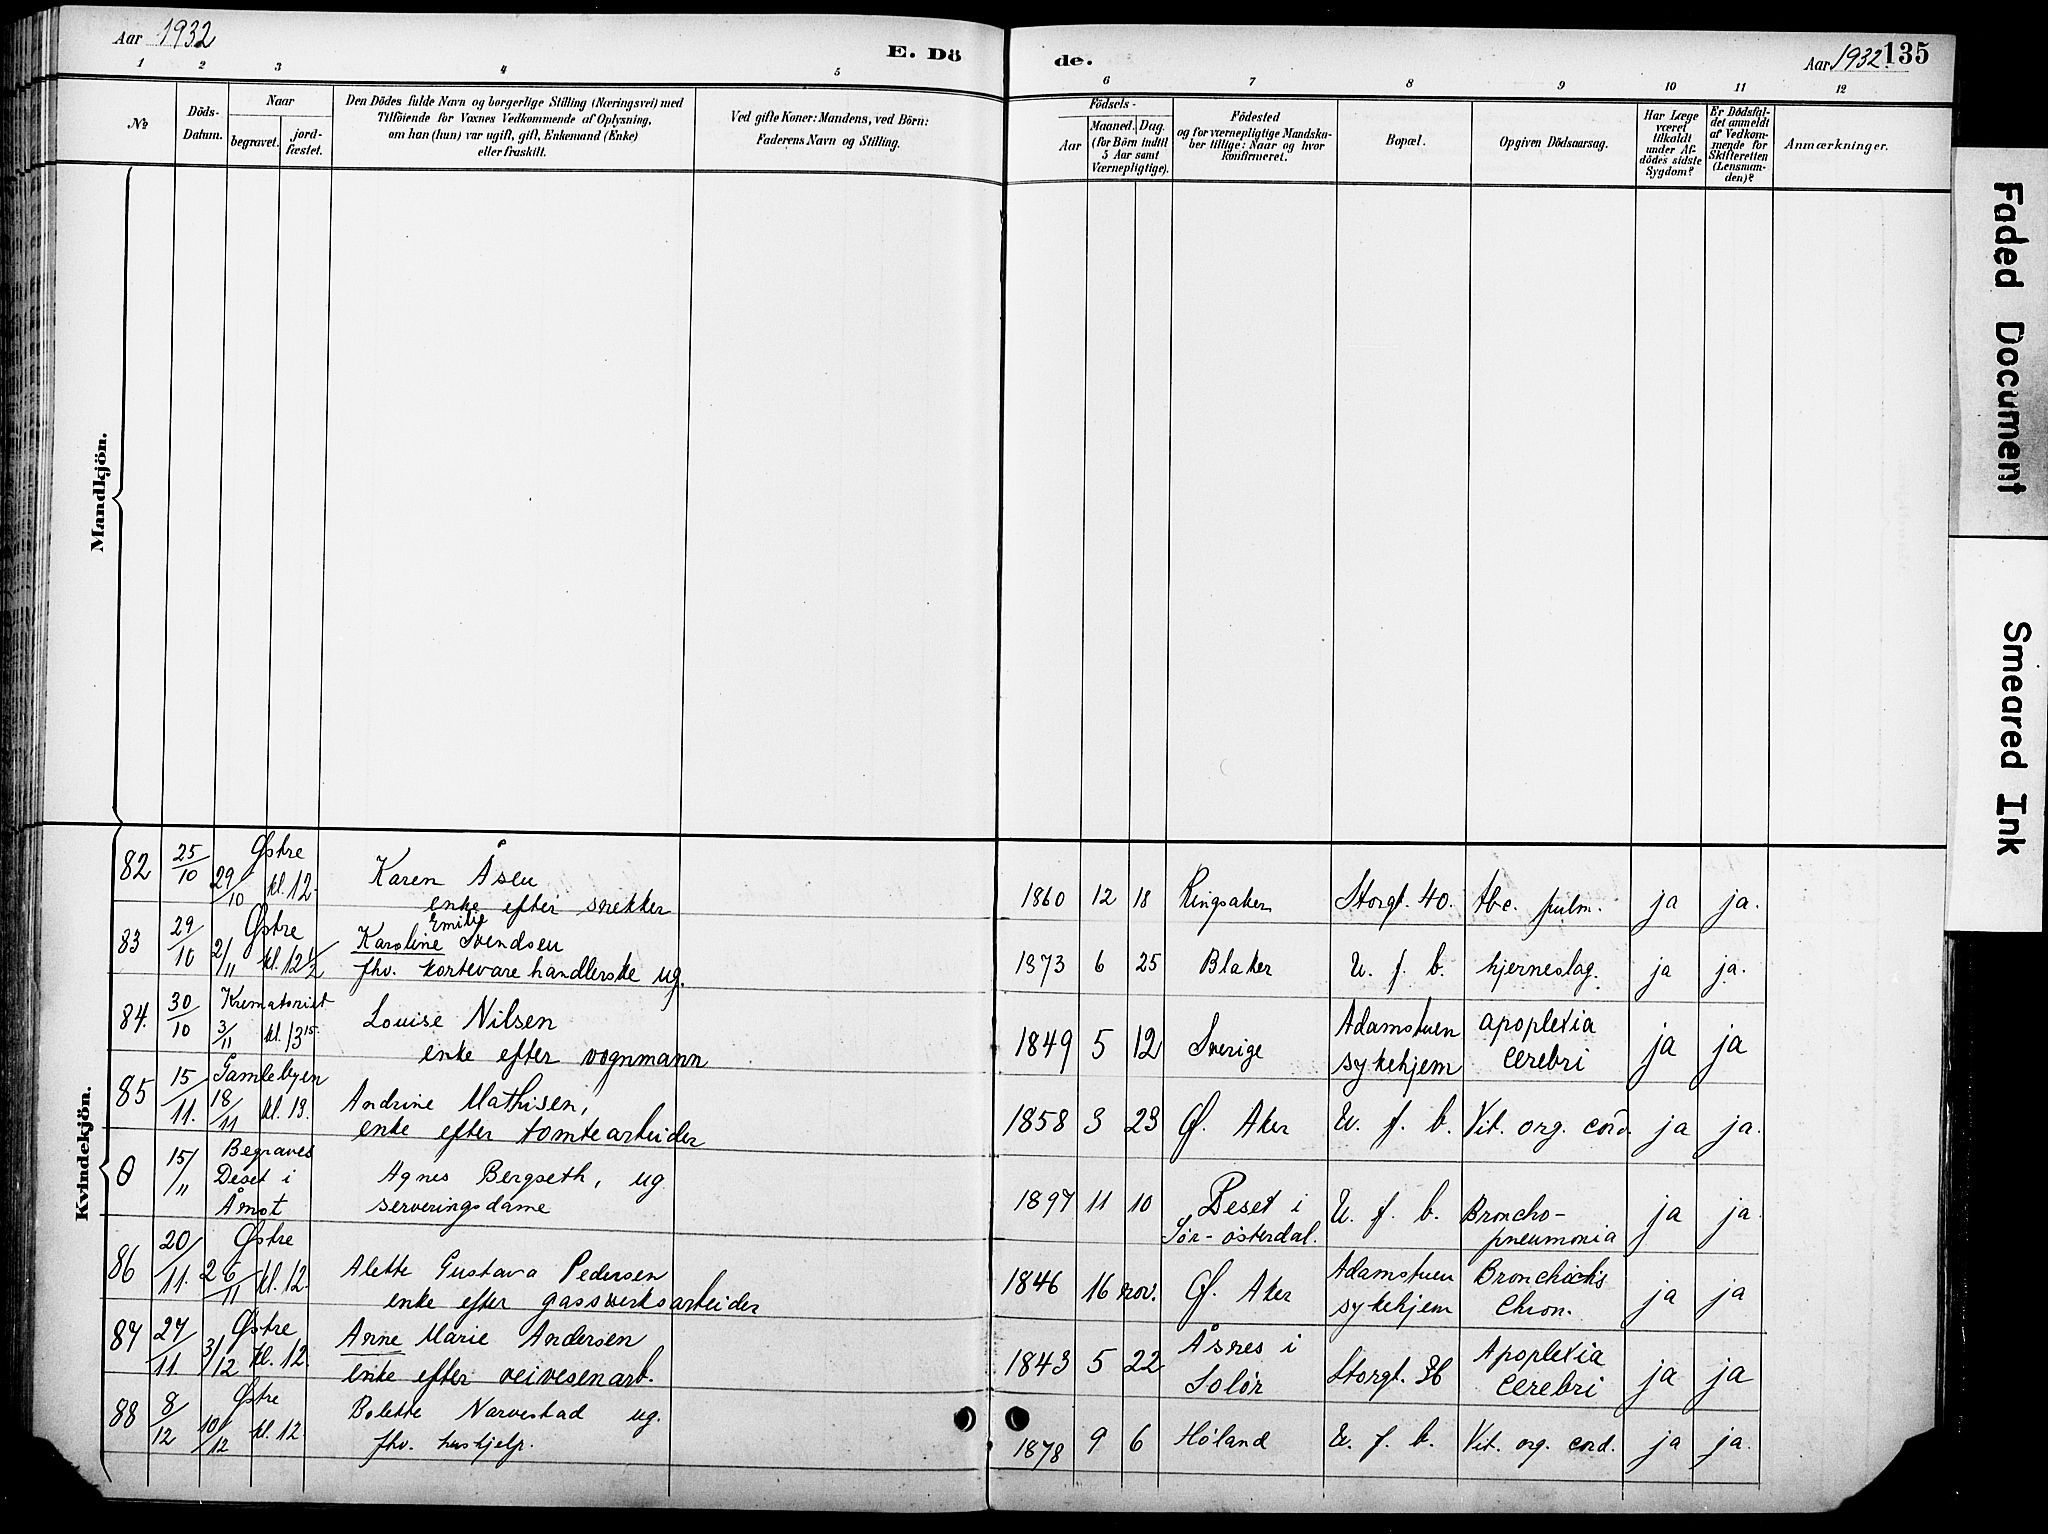 Aar 1932
E. Dö
de.
Aar 1932. 135
1 2 3 4 5 6 7 8 9 10 11 12
№
Döds-
Datum.
Naar
begravet.
jord-
fæstet.
Den Dödes fulde Navn og borgerlige Stilling (Næringsvei) med
Tilföiende for Voxnes Vedkommende af Oplysning,
om han (hun) var ugift, gift, Enkemand (Enke)
eller fraskilt.
Ved gifte Koner: Mandens, ved Börn:
Faderens Navn og Stilling.
Födsels-
Aar
Maaned. Dag.
(for Börn indtil
5 Aar samt
Værnepligtige).
Födested
og for værnepligtige Mandska-
ber tillige: Naar og hvor
konfirmeret.
Bopæl.
Opgiven Dödsaarsag.
Har Læge
været
tilkaldt
under Af-
dödes sidste
Sygdom?
Er Dödsfal-
det anmeldt
af Vedkom-
mende for
Skifteretten
(Lensman-
den)?
Anmærkninger.
Mandkjön.
Kvindekjön.
82 25/10 Østre 29/10 kl. 12 Karen Åsen
enke efter snekker 1860 12 18 Ringsaker Storgt. 40. tbc. pulm. ja ja.
83 29/10 Østre 2/11 kl. 12 1/2 Karoline Emilie Svendsen
fhv. kortevarehandlerske ug. 1873 6 25 Blaker U. f. b. hjerneslag. ja ja.
84. 30/10 Krematoriet 3/11 kl. 13 15 Louise Nilsen
enke efter vognmann 1849 5 12 Sverige Adamstuen
sykehjem apoplexia
cerebri ja ja
85 15/11. Gamlebyen 18/11 kl. 13. Andrine Mathisen,
enke efter tomtearbeider 1858 3 23 Ø. Aker U. f. b. Vit. org. cord. ja ja.
0 15/11 Begraves
Deset i
Åmot Agnes Bergseth, ug
serveringsdame 1897 11 10 Deset i
Sør-østerdal. U. f. b. Broncho-
pneumonia ja ja
86 20/11. Østre 26/11 kl. 12. Alette Gustava Pedersen
enke efter gassverksarbeider 1846 16 nov. Ø. Aker Adamstuen
sykehjem Bronchitis
Chron. ja ja
87 27/11. Østre 3/12 kl. 12. Anne Marie Andersen
enke efter veivesenarb. 1843 5 22 Åsnes i
Solør Storgt. 36 Apoplexia
cerebri ja ja
88 8/12 Østre 10/12 kl. 12. Bolette Narvestad ug.
fhv. hushjelp. 1878 9 6 Høland U. f. b. Vit. org. cord. ja ja.
Faded Document
Smeared Ink